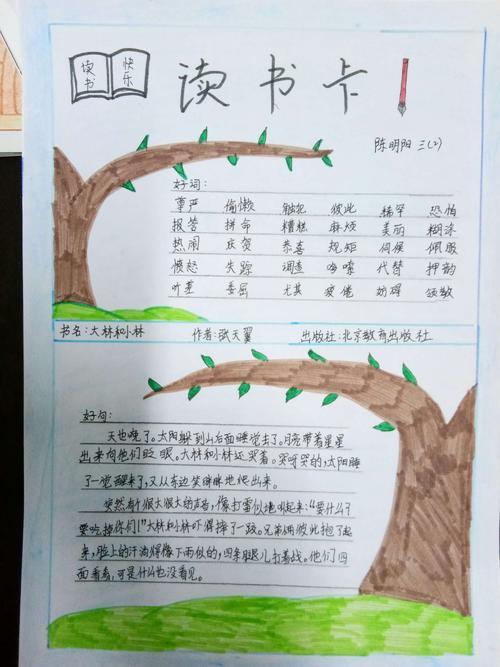 读书
快乐
读书卡
陈明阳 三(2)
好词:
尊严 偷懒 触犯 彼此 稀罕 恐怕
报答 拼命 糟糕 麻烦 美丽 糊涂
热闹 庆贺 恭喜 规矩 伺候 佩服
愤怒 失踪 调查 代替 押韵
叶茎 委屈 尤其 疲倦 妨碍 领教
书名:大林和小林 作者:张天翼 出版社:北京教育出版社
好句:
天也晚了。太阳躲到山后面睡觉去了。月亮带着星星
出来向他们眨眼。大林和小林还哭着。哭呀哭的,太阳睡
了一觉醒来了,又从东边笑眯眯地爬出来。
突然有个很大很大的声音,像打雷似地吼起来:“要什么?
要吃掉你们!”大林和小林吓得摔了一跤。兄弟俩彼此抱了起
来,脸上的汗油得像下雨似的,四条腿儿打着战。他们四
面看看,可是什么也没看见。